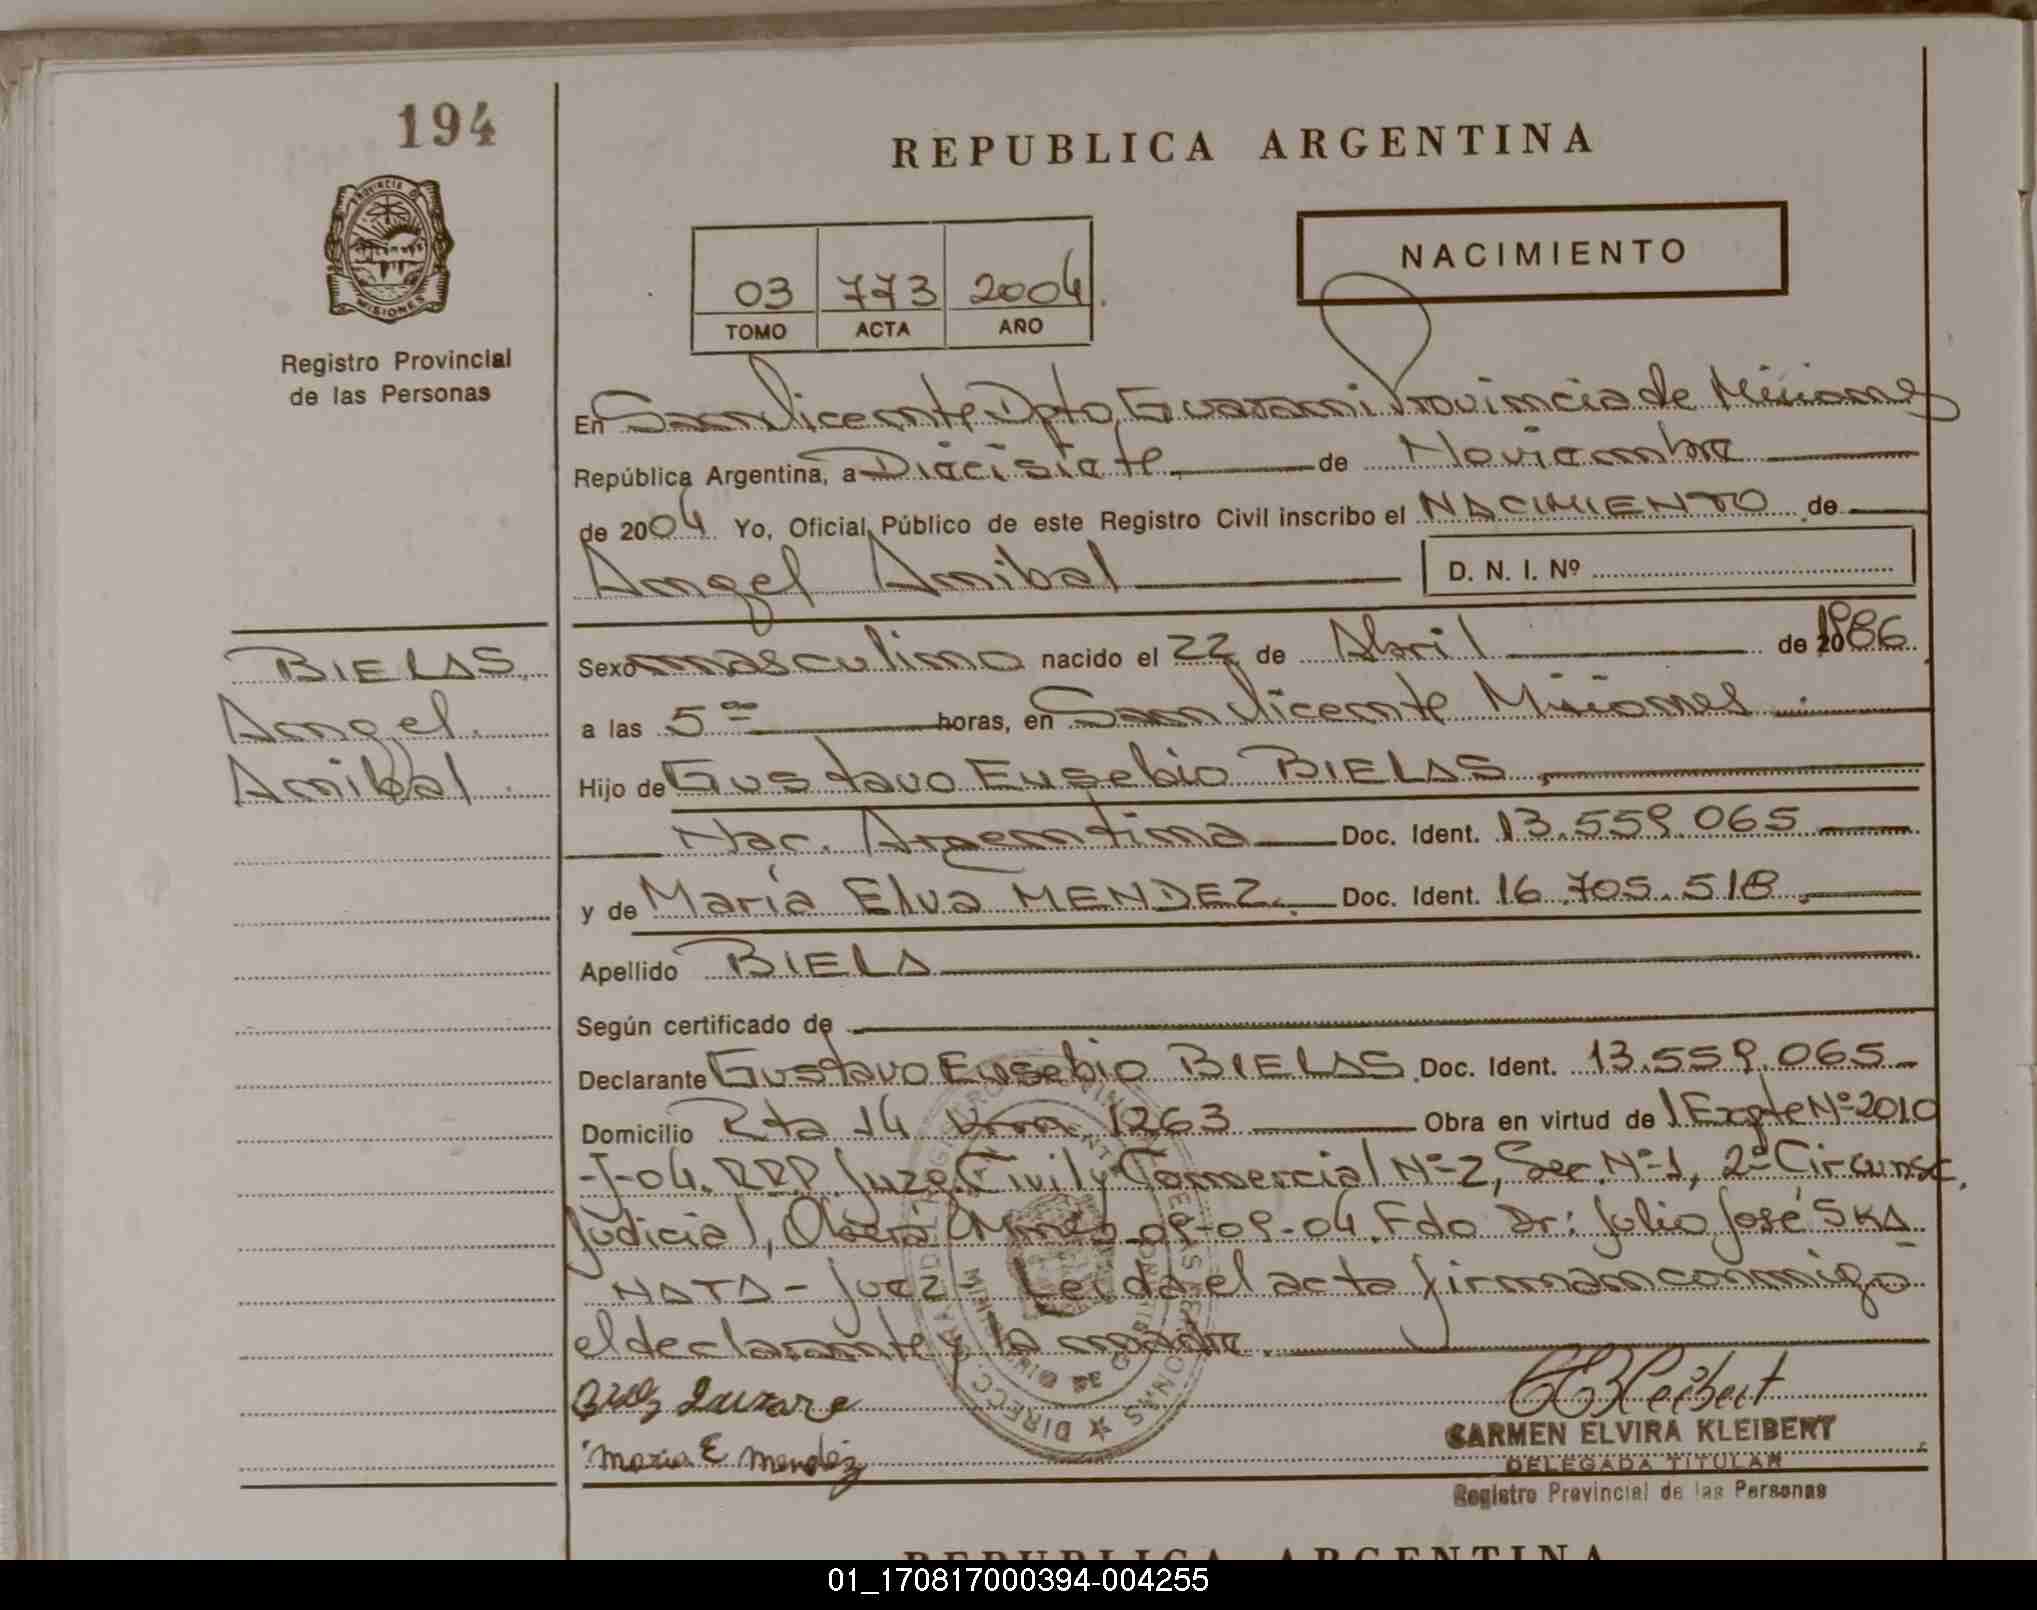 194
REPUBLICA ARGENTINA
NACIMIENTO
03 773 2004
TOMO ACTA AÑO
PROVINCIA D
MISIONES
Registro Provincial
de las Personas
En San Vicente Dpto. Guarani Provincia de Misiones
República Argentina, a Diecisiete de Noviembre
de 2004 Yo, Oficial Público de este Registro Civil inscribo el NACIMIENTO de
Angel Anibal D. N. I. Nº
BIELAS
Angel
Anibal
Sexo masculino nacido el 22 de Abril de 1986
a las 5 00 horas, en San Vicente Misiones
Hijo de Gustavo Eusebio BIELAS
Nac. Argentina Doc. Ident. 13.559.065
y de María Elva MENDEZ. Doc. Ident. 16.705.518
Apellido BIELA
Según certificado de
Declarante Gustavo Eusebio BIELAS. Doc. Ident. 13.559.065
Domicilio Rta 14 Km 1263 Obra en virtud de Expte Nº 2010
-J-04. RPP. Juzg. Civil y Comercial Nº 2, Sec. Nº 1, 2ª Circunsc.
Judicial, Oberá Mnes 09-09-04. Fdo Dr: Julio José SKA
NATA - Juez - Leida el acta firman conmigo
el declarante y la madre.
Maria E Mendez
CARMEN ELVIRA KLEIBERT
DELEGADA TITULAR
Registro Provincial de las Personas
REPUBLICA ARGENTINA
01_170817000394-004255